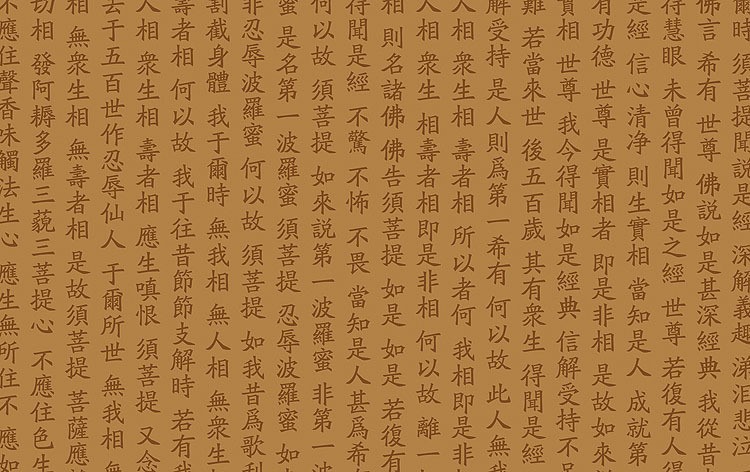 爾時 須菩提聞說是經 深解義趣 涕泪悲泣
佛言 希有 世尊 佛説如是甚深經典 我從昔
得慧眼 未曾得聞如是之經 世尊 若復有人
是經 信心清净 則生實相 當知是人 成就第
有功德 世尊 是實相者 即是非相 是故如來
實相 世尊 我今得聞如是經典 信解受持不
難 若當來世 後五百歲 其有衆生 得聞是經
解受持 是人則爲第一希有 何以故 此人無我
人相 衆生相 壽者相 所以者何 我相即是非
人相 衆生 相壽者相即是非相 何以故 離一
相 則名諸佛 佛告須菩提 如是 如是 若復有
得聞是經 不驚 不怖 不畏 當知是人 甚爲希
何以故 須菩提 如來説第一波羅蜜 非第一
蜜 是名第一波羅蜜 須菩提 忍辱波羅蜜 如
非忍辱波羅蜜 何以故 須菩提 如我昔爲歌利
割截身體 我于爾時 無我相 無人相 無衆生
壽者相 何以故 我于往昔節節支解時 若有我
人相 衆生相 壽者相 應生嗔恨 須菩提 又念
去于五百世作忍辱仙人 于爾所世 無我相 無
相 無衆生相 無壽者相 是故須菩提 菩薩應
切相 發阿耨多羅三藐三菩提心 不應住色生
不應住聲香味觸法生心 應生無所住不 應如